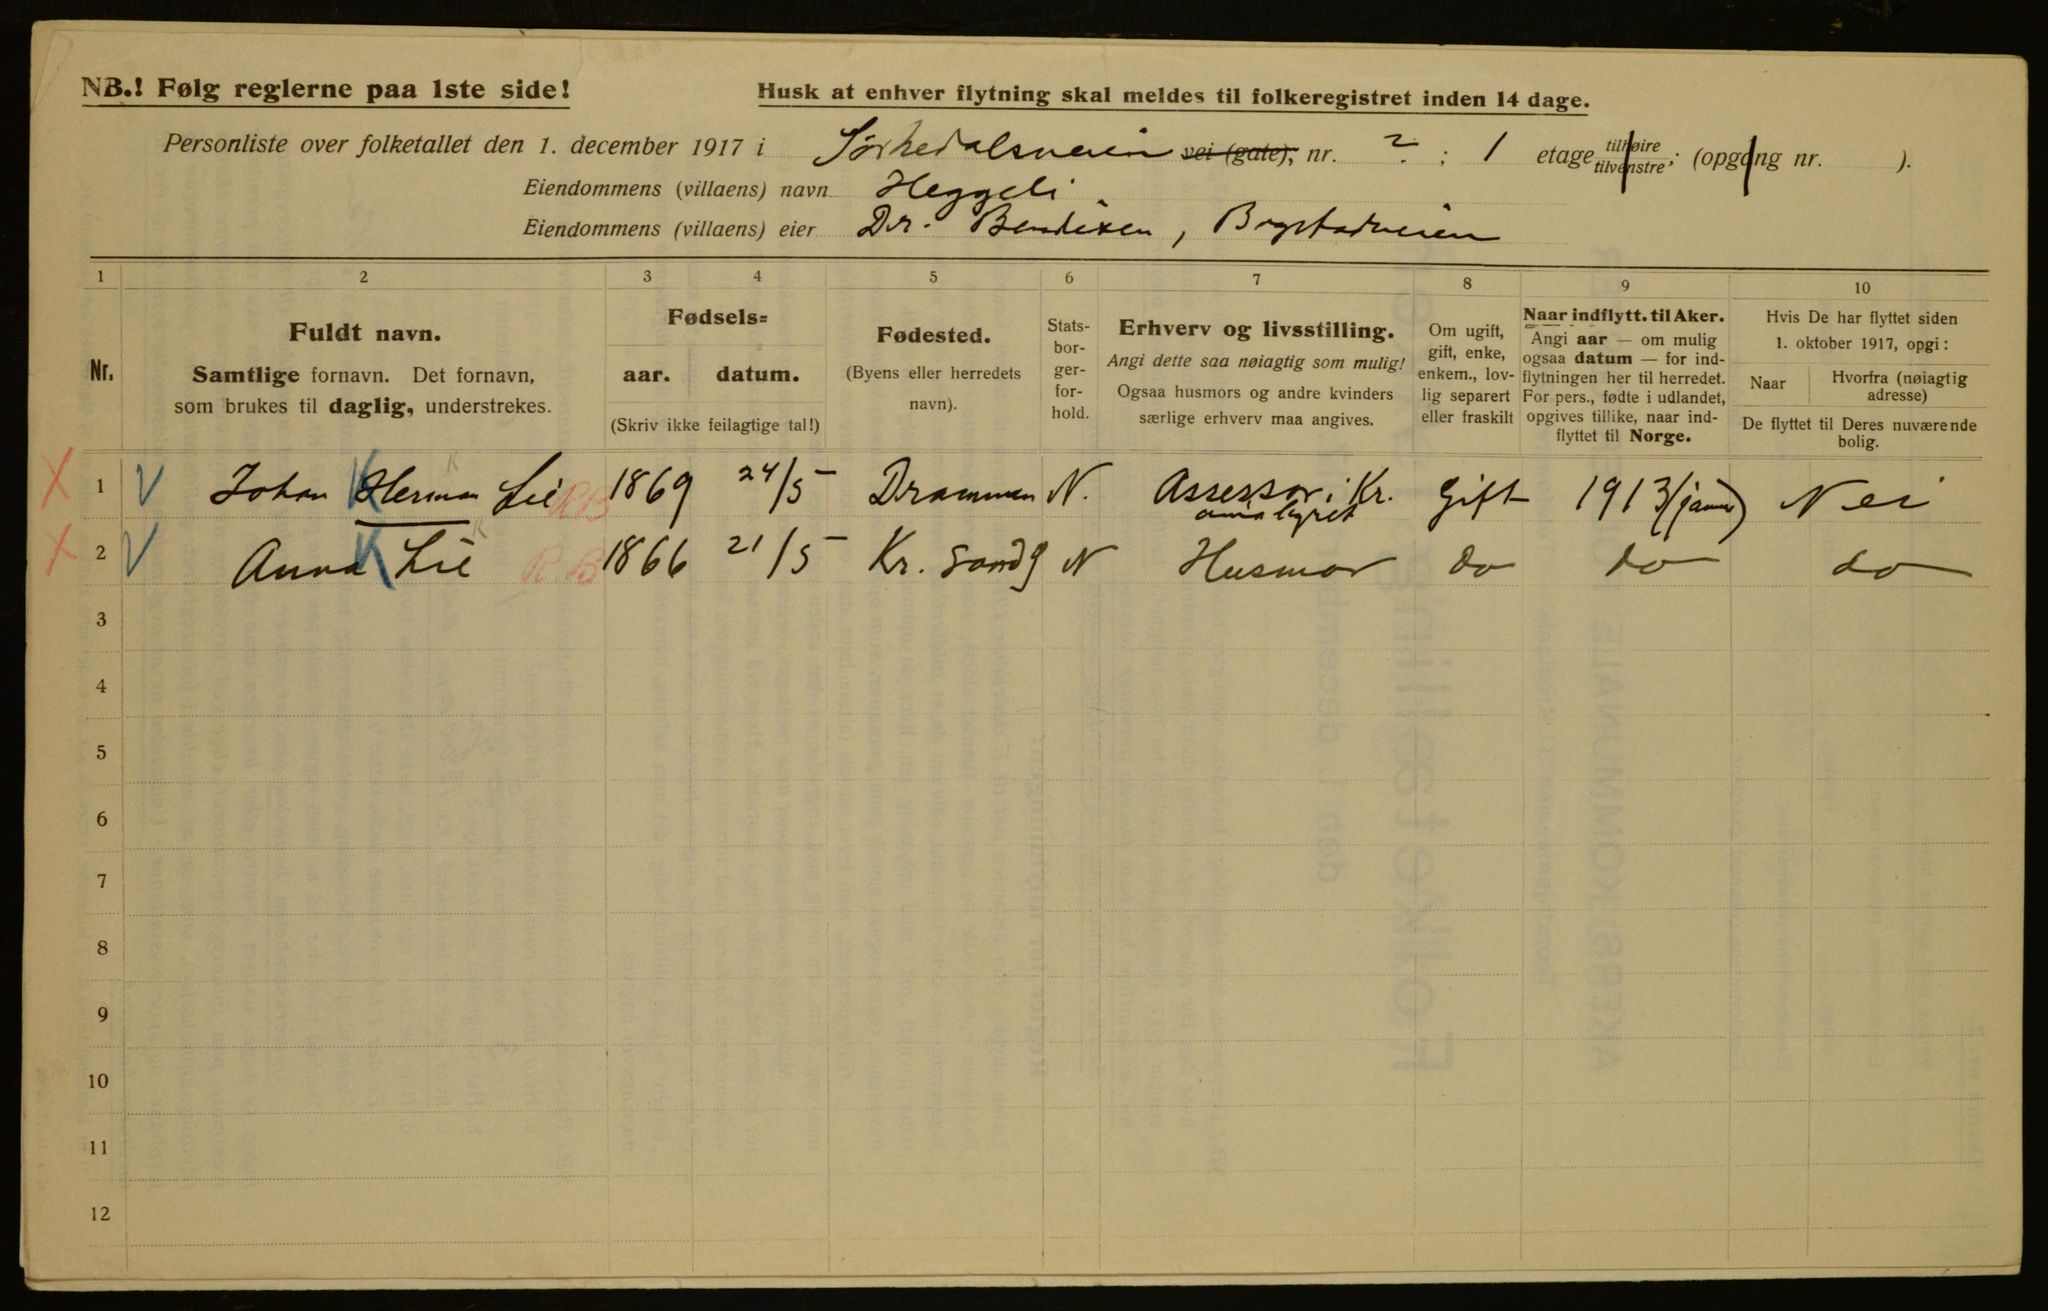 NB.! Følg reglerne paa 1ste side!
Husk at enhver flytning skal meldes til folkeregistret inden 14 dage.
Personliste over folketallet den 1. december 1917 i Sørkedalsveien vei (gate), nr. ? ; 1 etage tilhøire tilvenstre; (opgang nr. ).
Eiendommens (villaens) navn Heggeli
Eiendommens (villaens) eier Dr. Bendixen, Bogstadveien
1 2 3 4 5 6 7 8 9 10
Nr.
Fuldt navn.
Samtlige fornavn. Det fornavn,
som brukes til daglig, understrekes.
Fødsels=
aar. datum.
(Skriv ikke feilagtige tal!)
Fødested.
(Byens eller herredets
navn).
Stats-
bor-
ger-
for-
hold.
Erhverv og livsstilling.
Angi dette saa nøiagtig som mulig!
Ogsaa husmors og andre kvinders
særlige erhverv maa angives.
Om ugift,
gift, enke,
enkem., lov-
lig separert
eller fraskilt
Naar indflytt. til Aker.
Angi aar — om mulig
ogsaa datum — for ind-
flytningen her til herredet.
For pers., fødte i udlandet,
opgives tillike, naar ind-
flyttet til Norge.
Hvis De har flyttet siden
1. oktober 1917, opgi:
Naar
Hvorfra (nøiagtig
adresse)
De flyttet til Deres nuværende
bolig.
X 1 V Johan K Herman Lie RB 1869 24/5 Drammen N. Assessor i Kr. gift 1913 (januar) Nei
X 2 V Anna K Lie R.B 1866 21/5 Kr. sand N Husmor do do do
3
4
5
6
7
8
9
10
11
12